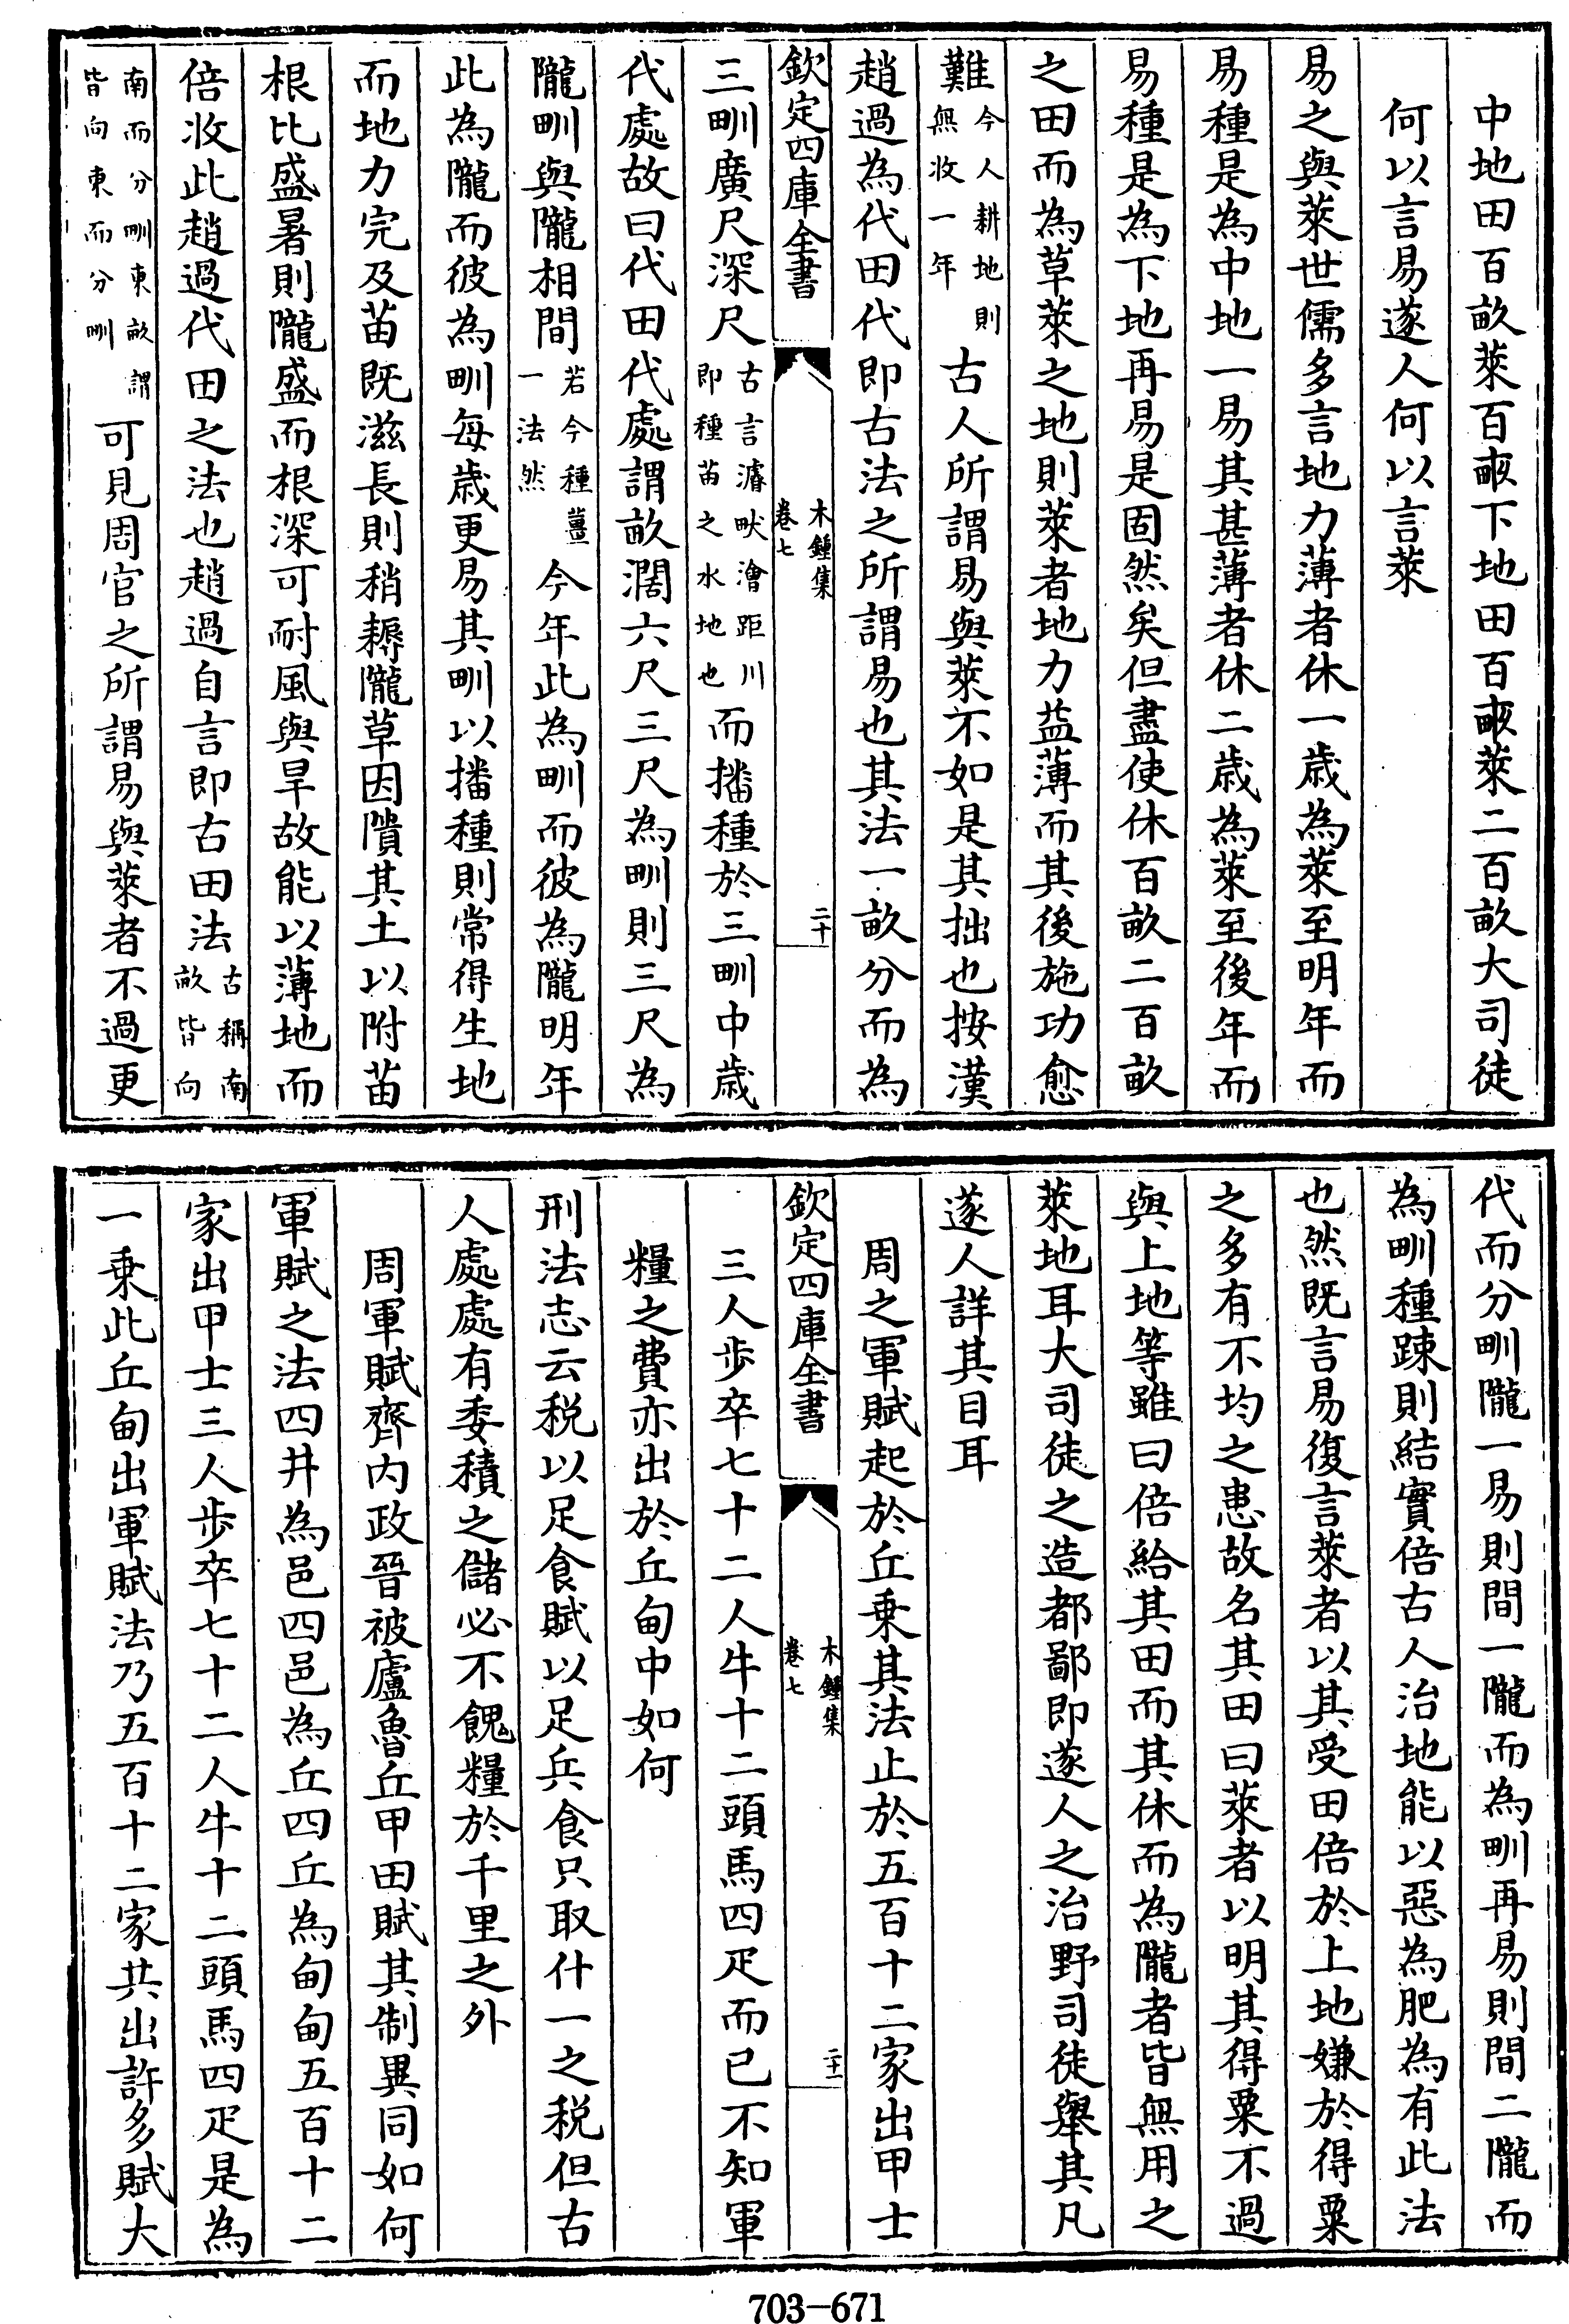 中地田百畝萊百畞下地田百畞萊二百畝大司徒
何以言易遂人何以言萊
易之與萊世儒多言地力薄者休一歳為萊至明年而
易種是為中地一易其甚薄者休二歳為萊至後年而
易種是為下地再易是固然矣但盡使休百畝二百畝
之田而為草萊之地則萊者地力益薄而其後施功愈
難今人耕地則無收一年古人所謂易與萊不如是其拙也按漢
趙過為代田代即古法之所謂易也其法一畝分而為
欽定四庫全書
木鍾集
卷七
二十
三甽廣尺深尺古言濬畎澮距川即種苗之水地也而播種於三甽中歳
代處故曰代田代處謂畝濶六尺三尺為甽則三尺為
隴甽與隴相間若今種薑一法然今年此為甽而彼為隴明年
此為隴而彼為甽每歳更易其甽以播種則常得生地
而地力完及苗既滋長則稍耨隴草因隤其土以附苗
根比盛暑則隴盛而根深可耐風與旱故能以薄地而
倍收此趙過代田之法也趙過自言即古田法古稱南畝皆向
南而分甽東畝謂皆向東而分甽可見周官之所謂易與萊者不過更
代而分甽隴一易則間一隴而為甽再易則間二隴而
為甽種踈則結實倍古人治地能以惡為肥為有此法
也然既言易復言萊者以其受田倍於上地嫌於得粟
之多有不均之患故名其田曰萊者以明其得粟不過
與上地等雖曰倍給其田而其休而為隴者皆無用之
萊地耳大司徒之造都鄙即遂人之治野司徒舉其凡
遂人詳其目耳
周之軍賦起於丘乗其法止於五百十二家出甲士
欽定四庫全書
木鍾集
卷七
二十一
三人歩卒七十二人牛十二頭馬四疋而已不知軍
糧之費亦出於丘甸中如何
刑法志云税以足食賦以足兵食只取什一之税但古
人處處有委積之儲必不餽糧於千里之外
周軍賦齊内政晉被廬魯丘甲田賦其制異同如何
軍賦之法四井為邑四邑為丘四丘為甸甸五百十二
家出甲士三人歩卒七十二人牛十二頭馬四疋是為
一乗此丘甸出軍賦法乃五百十二家共出許多賦大
703-671